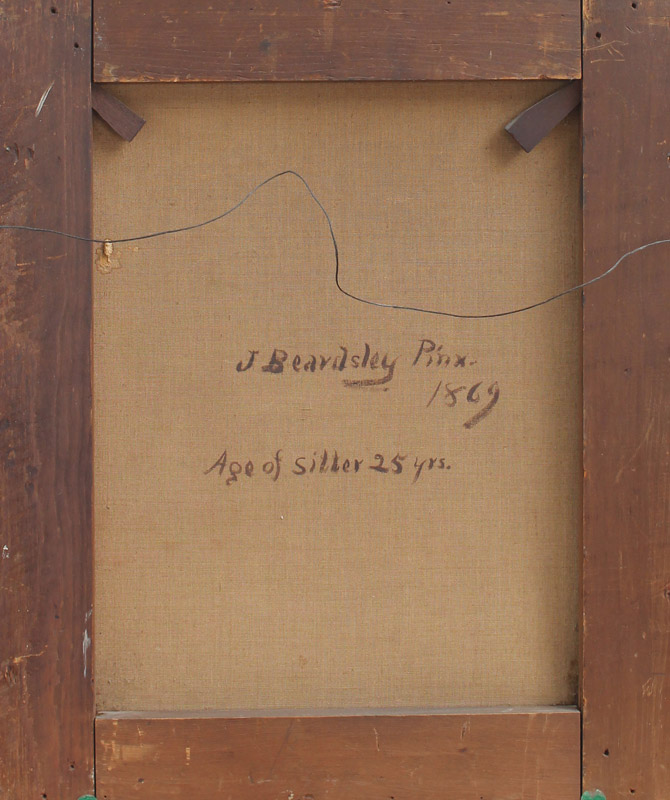 J Beardsley Pinx.
1869
Age of sitter 25 yrs.